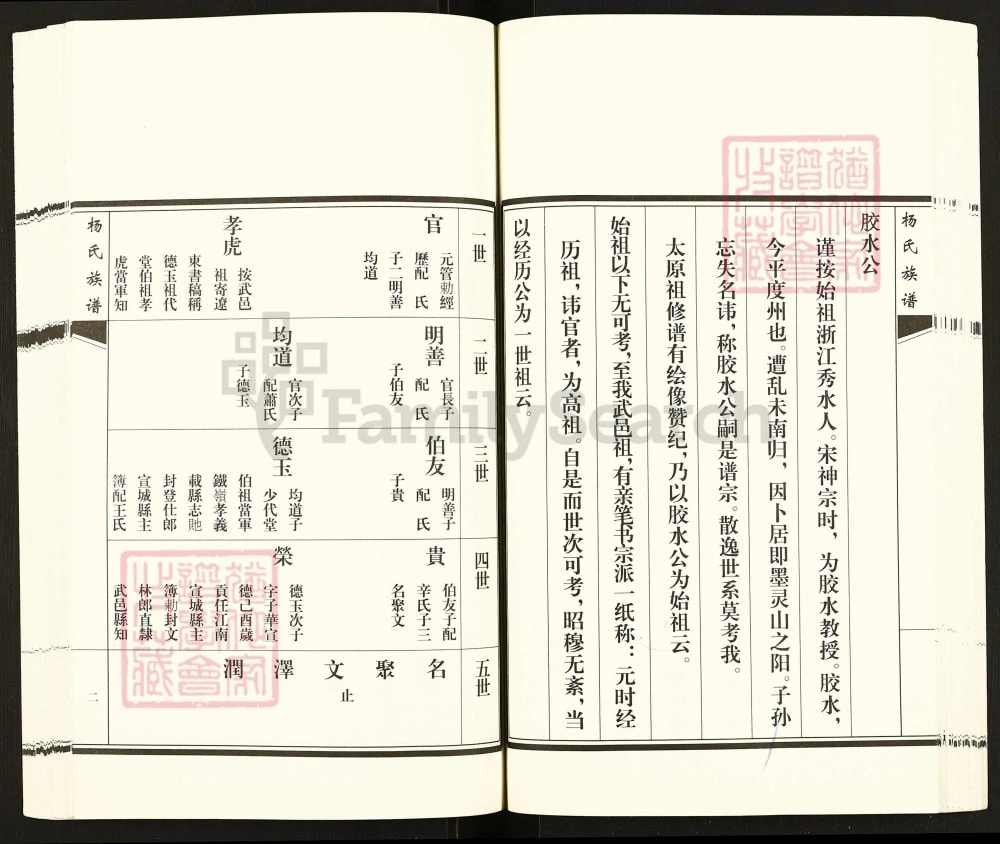 杨氏族谱
胶水公
谨按始祖浙江秀水人。宋神宗时，为胶水教授。胶水，
今平度州也。遭乱未南归，因卜居即墨灵山之阳。子孙
忘失名讳，称胶水公嗣是谱宗。散逸世系莫考我。
太原祖修谱有绘像赞纪，乃以胶水公为始祖云。
始祖以下无可考，至我武邑祖，有亲笔书宗派一纸称：元时经
历祖，讳官者，为高祖。自是而世次可考，昭穆无紊，当
以经历公为一世祖云。
一世
官
元管勅經
歷配　氏
子二明善
均道
孝虎
按武邑
祖寄遼
東書稿稱
德玉祖代
堂伯祖孝
虎當軍知
二世
明善
官長子
配　氏
子伯友
均道
官次子
配蕭氏
子德玉
三世
伯友
明善子
配　氏
子貴
德玉
均道子
少代堂
伯祖當軍
鐵嶺孝義
載縣志貤
封登仕郎
宣城縣主
簿配王氏
四世
貴
伯友子配
辛氏子三
名聚文
榮
德玉次子
字子華宣
德己酉歲
貢任江南
宣城縣主
簿勅封文
林郎直隸
武邑縣知
五世
名
聚
文
止
澤
潤
杨氏族谱
二
FamilySearch